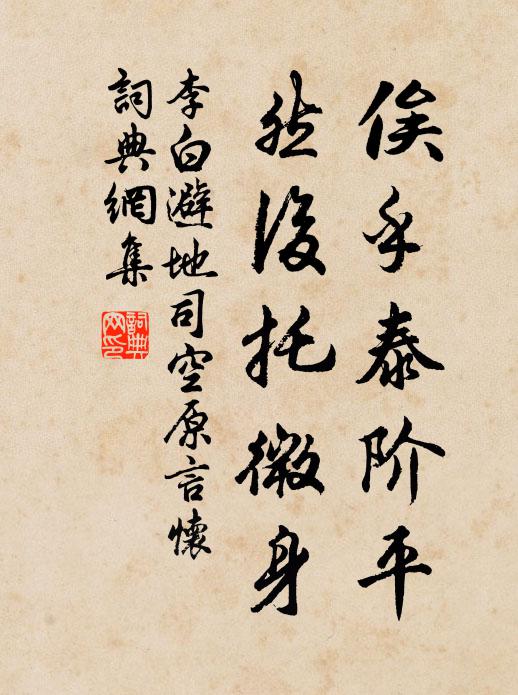 俟乎泰阶平
然後托微身
李白避地司空原言懷
詞典網集
詞典網印